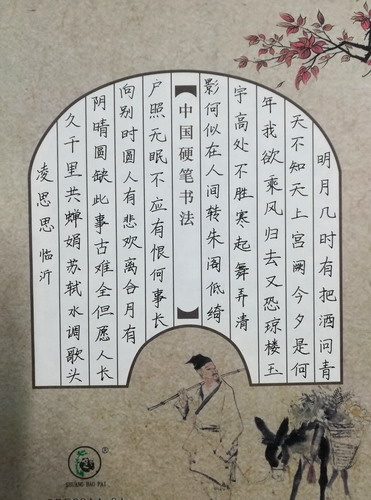 明月几时有把酒问青
天不知天上宫阙今夕是何
年我欲乘风归去又恐琼楼玉
宇高处不胜寒起舞弄清
影何似在人间转朱阁低绮
【中国硬笔书法】
户照无眠不应有恨何事长
向别时圆人有悲欢离合月有
阴晴圆缺此事古难全但愿人长
久千里共蝉娟苏轼水调歌头
凌思思 临沂